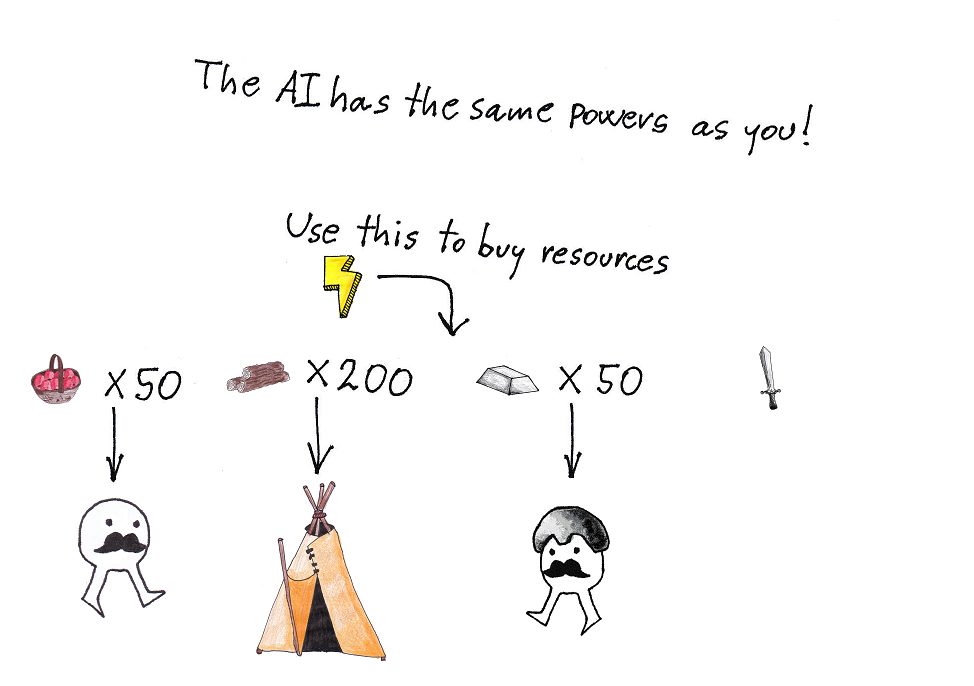 The AI has the same powers as you!
Use this to buy resources
X 50
X 200
X 50